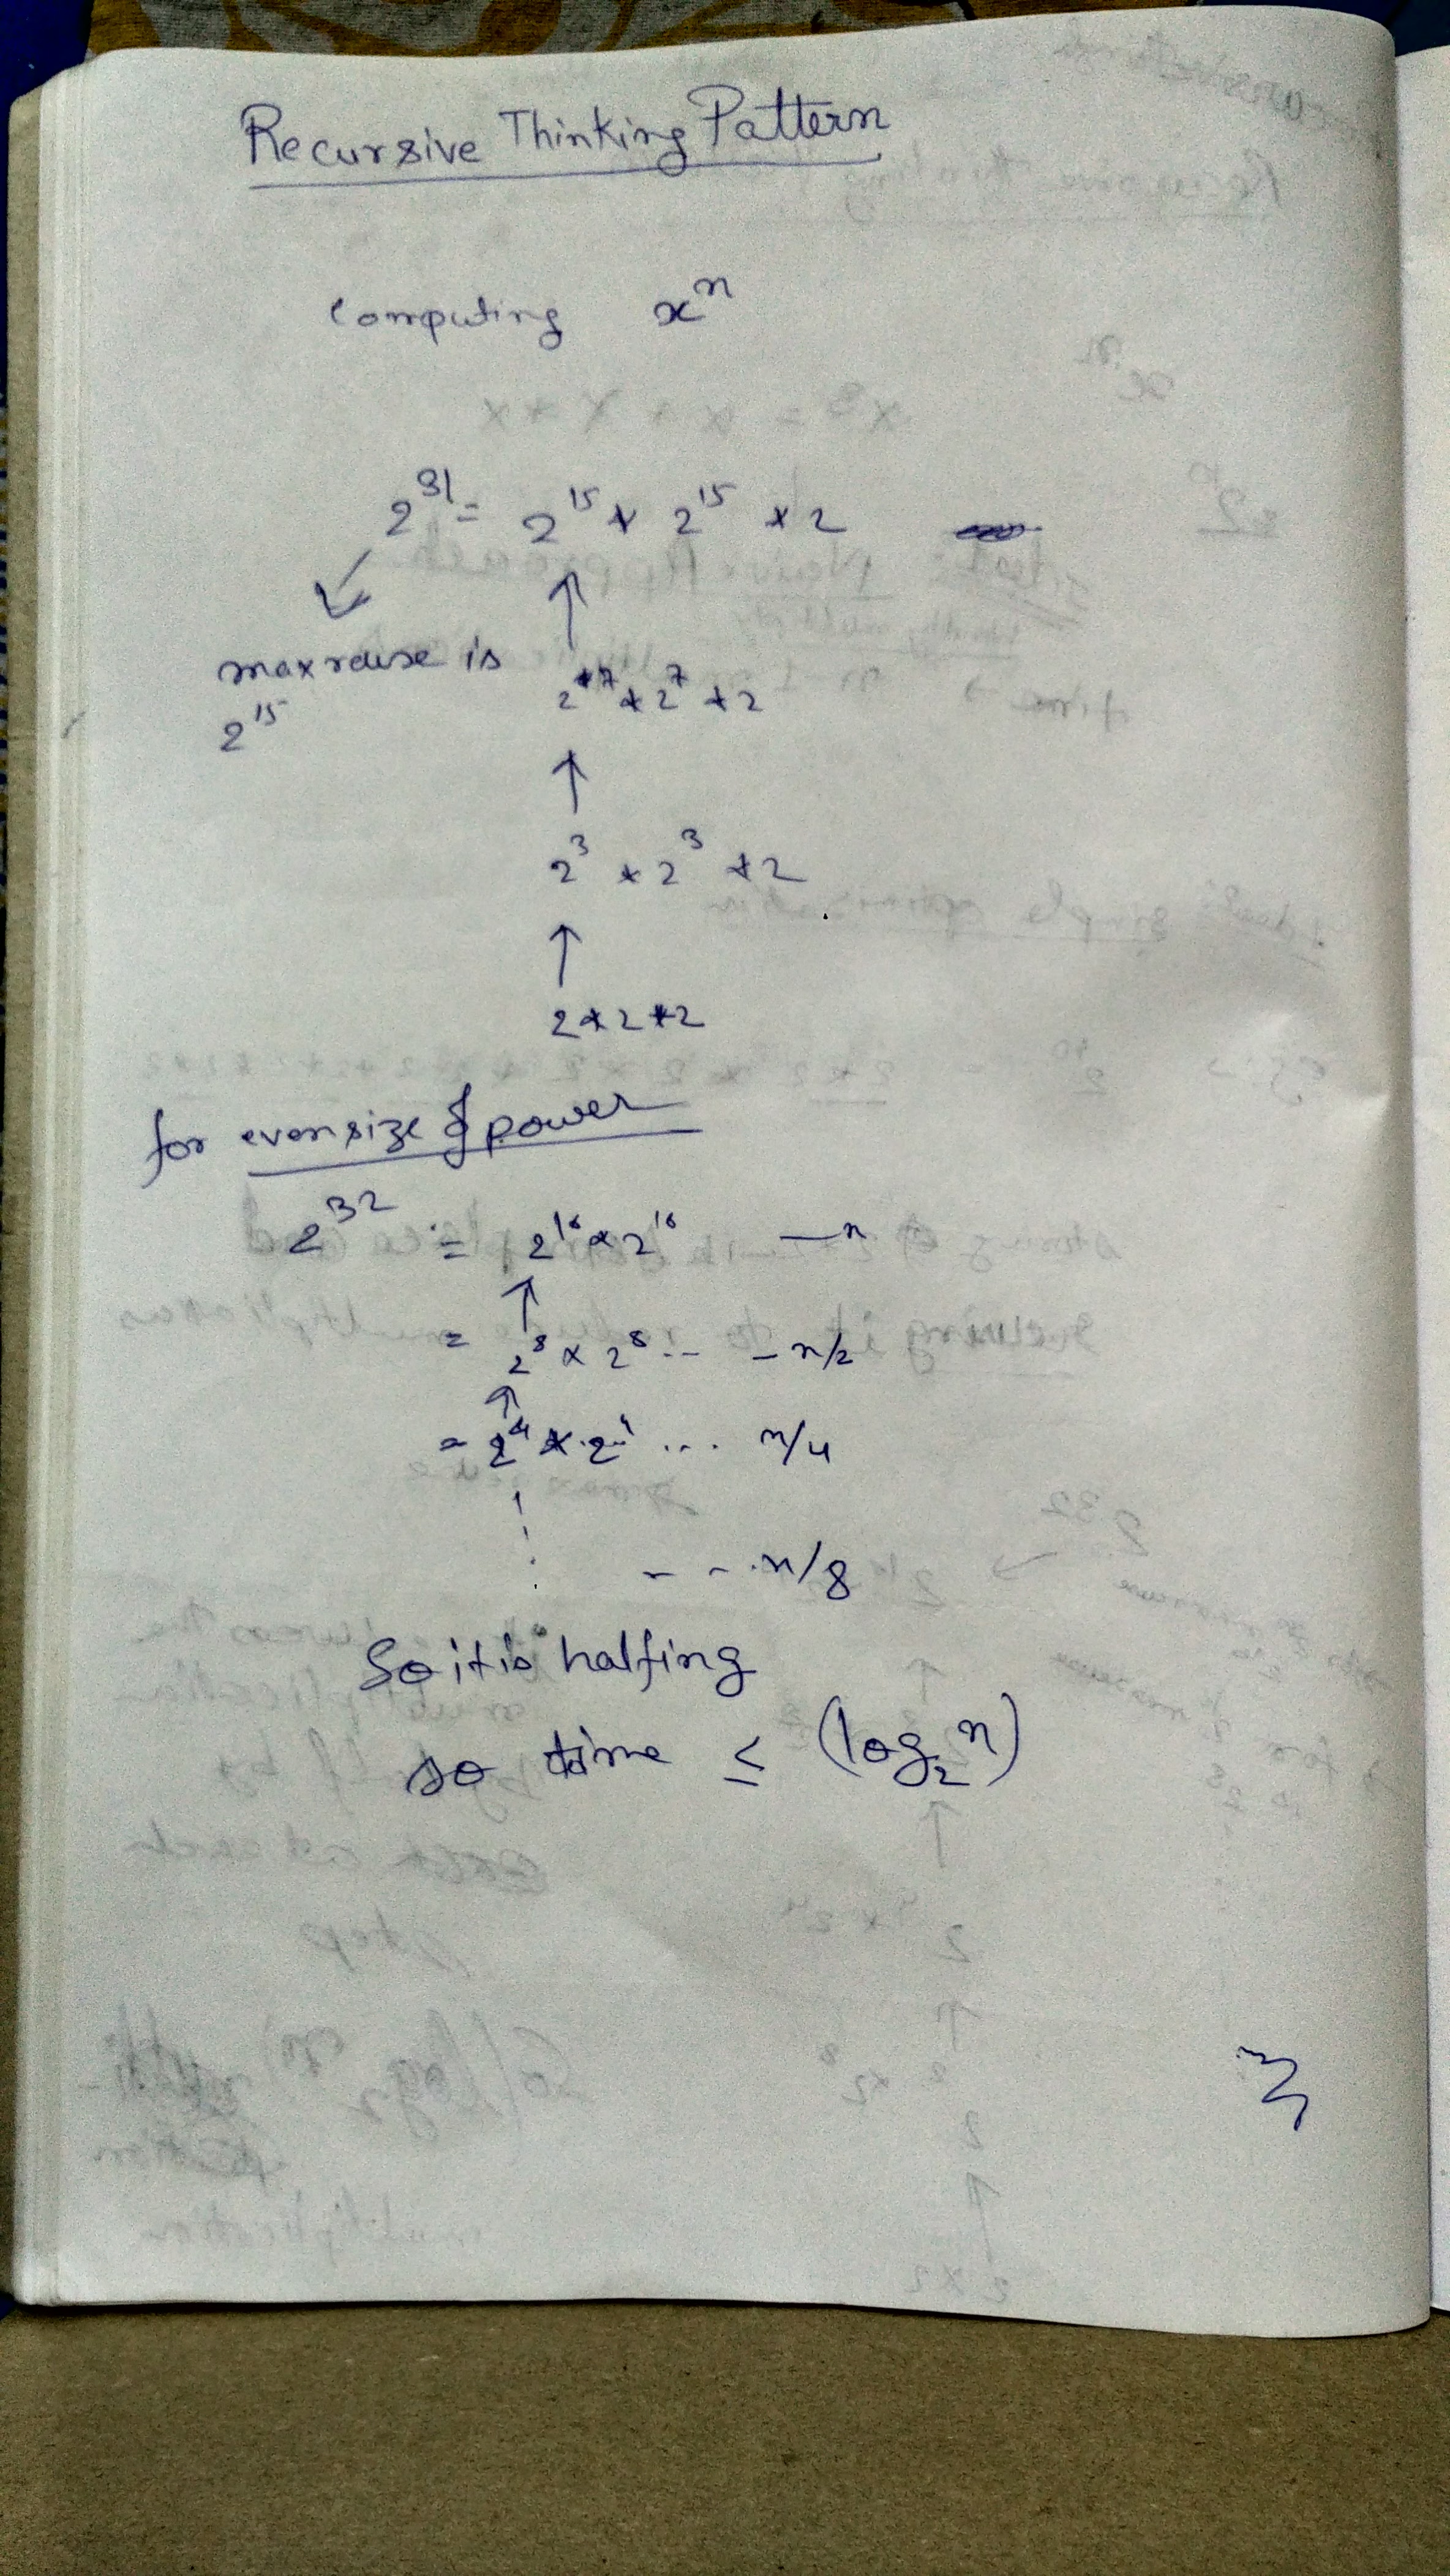 Recursive Thinking Pattern
Computing xⁿ
2³¹ = 2¹⁵ * 2¹⁵ * 2
max reuse is
2¹⁵
2⁷ * 2⁷ * 2
2³ * 2³ * 2
2*2*2
for even size of power
2³² = 2¹⁶ * 2¹⁶ — n
= 2⁸ × 2⁸ -- - n/2
= 2⁴ * 2⁴ ... n/4
- - . n/8
So it is halfing
so time ≤ (log₂ n)